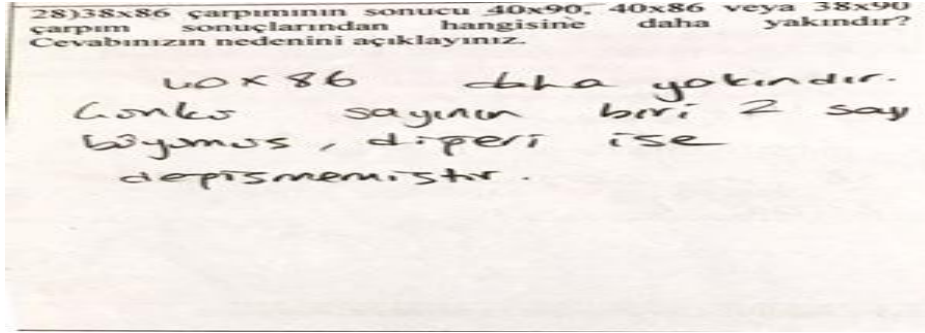 28)38x86 çarpımının sonucu 40x90, 40x86 veya 38x90
çarpım sonuçlarından hangisine daha yakındır?
Cevabınızın nedenini açıklayınız.
40x86 daha yakındır.
Çünkü sayının biri 2 sayı
büyümüş, diğeri ise
değişmemiştir.